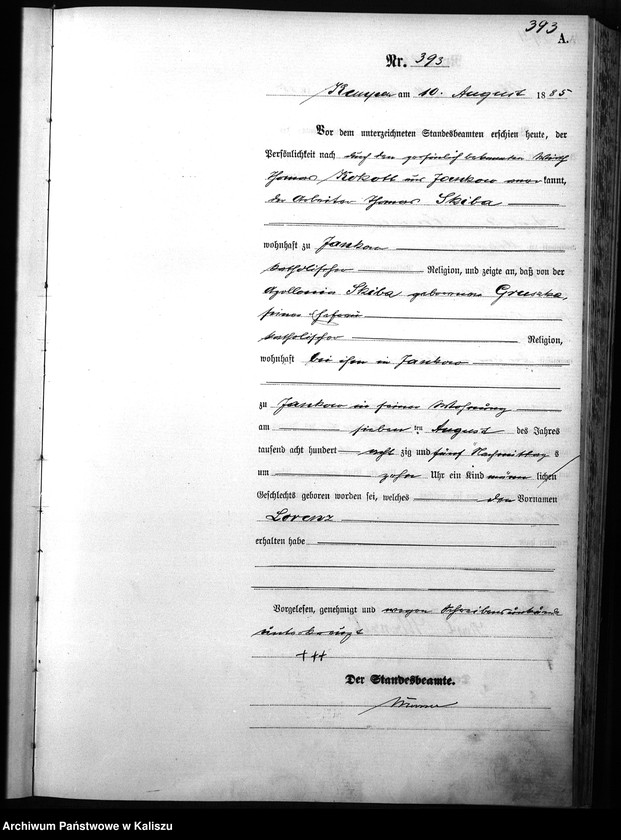 393
A.
Nr. 393
Kempen am 10. August 1885
Vor dem unterzeichneten Standesbeamten erschien heute, der
Persönlichkeit nach durch den persönlich bekannten Wirth
Thomas Kokott aus Jankow anerkannt,
der Arbeiter Thomas Skiba
wohnhaft zu Jankow
katholischer Religion, und zeigte an, daß von der
Apollonia Skiba geborenen Gruszka,
seiner Ehefrau
katholischer Religion,
wohnhaft bei ihm in Jankow
zu Jankow in seiner Wohnung
am sieben ten August des Jahres
tausend acht hundert acht zig und fünf Nachmittag s
um zehn Uhr ein Kind männ lichen
Geschlechts geboren worden sei, welches den Vornamen
Lorenz
erhalten habe
Vorgelesen, genehmigt und wegen Schreibensunkunde
unterkreuzt
+++
Der Standesbeamte.
Archiwum Państwowe w Kaliszu